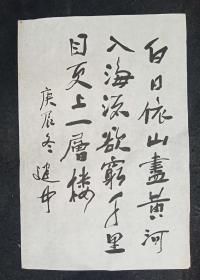 白日依山盡黄河
入海流欲窮千里
目更上一層樓
庚辰冬建中